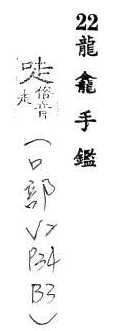 22龍龕手鑑
𠯿俗音走
(口部
V2
P34
B3)